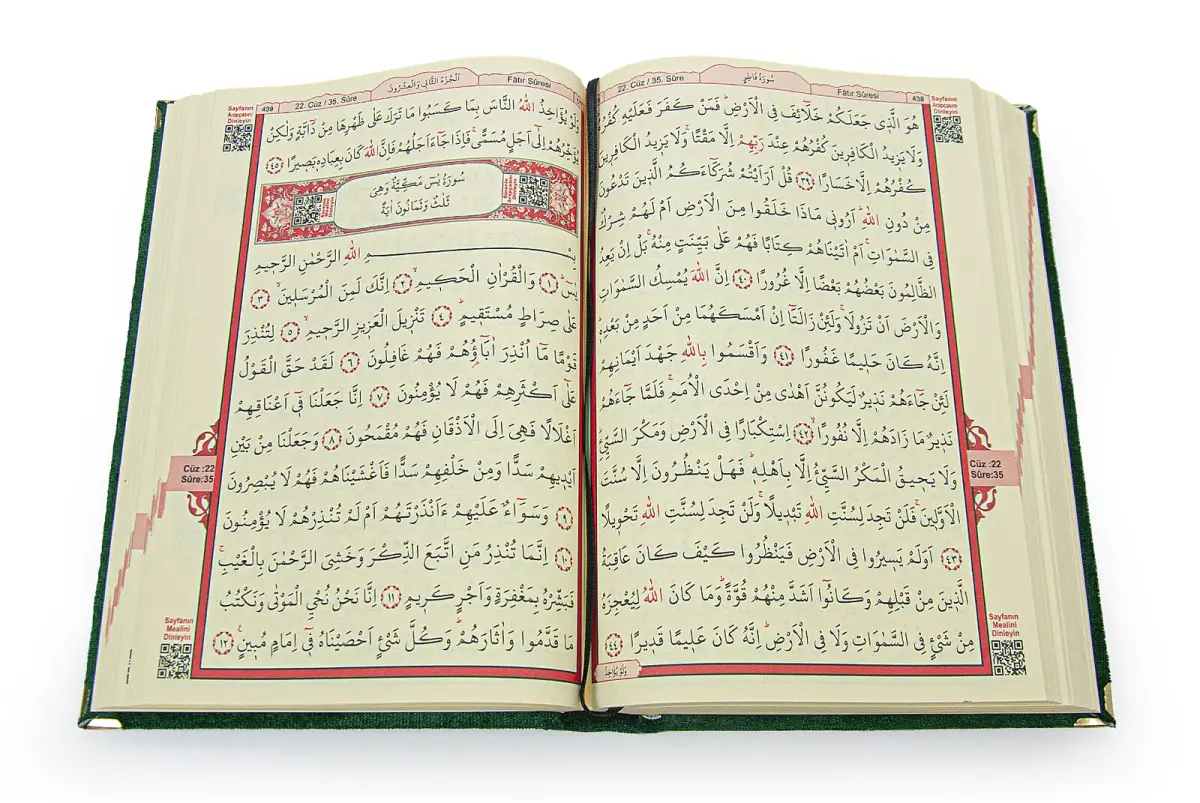 438
سُورَةُ فَاطِرٍ
22. Cüz / 35. Sûre
Fâtır Sûresi
Sayfanın
Arapçasını
Dinleyin
هُوَ الَّذِى جَعَلَكُمْ خَلَٓائِفَ فِى الْاَرْضِۜ فَمَنْ كَفَرَ فَعَلَيْهِ كُفْرُهُۜ
وَلَا يَزِيدُ الْكَافِرِينَ كُفْرُهُمْ عِنْدَ رَبِّهِمْ اِلَّا مَقْتًاۚ وَلَا يَزِيدُ الْكَافِرِينَ
كُفْرُهُمْ اِلَّا خَسَارًا ﴿٣٩﴾ قُلْ اَرَاَيْتُمْ شُرَكَٓاءَكُمُ الَّذِينَ تَدْعُونَ
مِنْ دُونِ اللّٰهِۜ اَرُونِى مَاذَا خَلَقُوا مِنَ الْاَرْضِ اَمْ لَهُمْ شِرْكٌ
فِى السَّمٰوَاتِۚ اَمْ اٰتَيْنَاهُمْ كِتَابًا فَهُمْ عَلٰى بَيِّنَتٍ مِنْهُۚ بَلْ اِنْ يَعِدُ
الظَّالِمُونَ بَعْضُهُمْ بَعْضًا اِلَّا غُرُورًا ﴿٤٠﴾ اِنَّ اللّٰهَ يُمْسِكُ السَّمٰوَاتِ
وَالْاَرْضَ اَنْ تَزُولَاۚ وَلَئِنْ زَالَتَٓا اِنْ اَمْسَكَهُمَا مِنْ اَحَدٍ مِنْ بَعْدِهٖۜ
اِنَّهُ كَانَ حَلِيمًا غَفُورًا ﴿٤١﴾ وَاَقْسَمُوا بِاللّٰهِ جَهْدَ اَيْمَانِهِمْ
لَئِنْ جَٓاءَهُمْ نَذِيرٌ لَيَكُونُنَّ اَهْدٰى مِنْ اِحْدَى الْاُمَمِۚ فَلَمَّا جَٓاءَهُمْ
نَذِيرٌ مَا زَادَهُمْ اِلَّا نُفُورًا ﴿٤٢﴾ اِسْتِكْبَارًا فِى الْاَرْضِ وَمَكْرَ السَّيِّئِۜ
وَلَا يَحِيقُ الْمَكْرُ السَّيِّئُ اِلَّا بِاَهْلِهٖۜ فَهَلْ يَنْظُرُونَ اِلَّا سُنَّتَ
الْاَوَّلِينَۚ فَلَنْ تَجِدَ لِسُنَّتِ اللّٰهِ تَبْدِيلًاۚ وَلَنْ تَجِدَ لِسُنَّتِ اللّٰهِ تَحْوِيلًا
﴿٤٣﴾ اَوَلَمْ يَسِيرُوا فِى الْاَرْضِ فَيَنْظُرُوا كَيْفَ كَانَ عَاقِبَةُ
الَّذِينَ مِنْ قَبْلِهِمْ وَكَانُٓوا اَشَدَّ مِنْهُمْ قُوَّةًۜ وَمَا كَانَ اللّٰهُ لِيُعْجِزَهُ
مِنْ شَىْءٍ فِى السَّمٰوَاتِ وَلَا فِى الْاَرْضِۜ اِنَّهُ كَانَ عَلِيمًا قَدِيرًا ﴿٤٤﴾
وَلَوْ يُؤَاخِذُ
Cüz :22
Sûre:35
Sayfanın
Mealini
Dinleyin
439
22. Cüz / 35. Sûre
اَلْجُزْءُ الثَّانِى وَالْعِشْرُونَ
Fâtır Sûresi
Sayfanın
Arapçasını
Dinleyin
وَلَوْ يُؤَاخِذُ اللّٰهُ النَّاسَ بِمَا كَسَبُوا مَا تَرَكَ عَلٰى ظَهْرِهَا مِنْ دَٓابَّةٍ وَلٰكِنْ
يُؤَخِّرُهُمْ اِلٰٓى اَجَلٍ مُسَمًّىۚ فَاِذَا جَٓاءَ اَجَلُهُمْ فَاِنَّ اللّٰهَ كَانَ بِعِبَادِهٖ بَصِيرًا ﴿٤٥﴾
سُورَةُ يٰسٓ مَكِّيَّةٌ وَهِىَ
ثَلٰثٌ وَثَمَانُونَ اٰيَةً
بِسْمِ اللّٰهِ الرَّحْمٰنِ الرَّحِيمِ
يٰسٓۜ ﴿١﴾ وَالْقُرْاٰنِ الْحَكِيمِۙ ﴿٢﴾ اِنَّكَ لَمِنَ الْمُرْسَلِينَۙ ﴿٣﴾
عَلٰى صِرَاطٍ مُسْتَقِيمٍۜ ﴿٤﴾ تَنْزِيلَ الْعَزِيزِ الرَّحِيمِۙ ﴿٥﴾ لِتُنْذِرَ
قَوْمًا مَٓا اُنْذِرَ اٰبَٓاؤُهُمْ فَهُمْ غَافِلُونَ ﴿٦﴾ لَقَدْ حَقَّ الْقَوْلُ
عَلٰٓى اَكْثَرِهِمْ فَهُمْ لَا يُؤْمِنُونَ ﴿٧﴾ اِنَّا جَعَلْنَا فِٓى اَعْنَاقِهِمْ
اَغْلَالًا فَهِىَ اِلَى الْاَذْقَانِ فَهُمْ مُقْمَحُونَ ﴿٨﴾ وَجَعَلْنَا مِنْ بَيْنِ
اَيْدِيهِمْ سَدًّا وَمِنْ خَلْفِهِمْ سَدًّا فَاَغْشَيْنَاهُمْ فَهُمْ لَا يُبْصِرُونَ
﴿٩﴾ وَسَوَٓاءٌ عَلَيْهِمْ ءَاَنْذَرْتَهُمْ اَمْ لَمْ تُنْذِرْهُمْ لَا يُؤْمِنُونَ
﴿١٠﴾ اِنَّمَا تُنْذِرُ مَنِ اتَّبَعَ الذِّكْرَ وَخَشِىَ الرَّحْمٰنَ بِالْغَيْبِۚ
فَبَشِّرْهُ بِمَغْفِرَةٍ وَاَجْرٍ كَرِيمٍ ﴿١١﴾ اِنَّا نَحْنُ نُحْىِ الْمَوْتٰى وَنَكْتُبُ
مَا قَدَّمُوا وَاٰثَارَهُمْۜ وَكُلَّ شَىْءٍ اَحْصَيْنَاهُ فِٓى اِمَامٍ مُبِينٍ۟ ﴿١٢﴾
Cüz :22
Sûre:35
Sayfanın
Mealini
Dinleyin